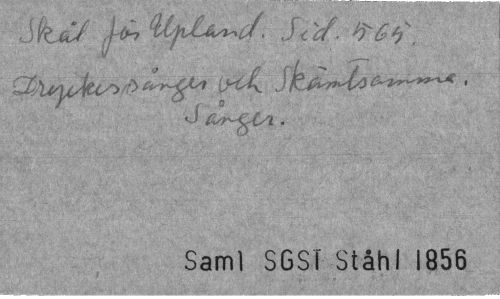 Skål för Upland. Sid. 565.
Dryckessånger och Skämtsamma.
Sånger.
Saml SGST Ståhl 1856